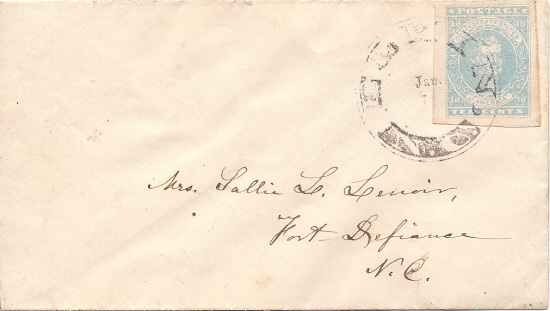 POSTAGE
10 10
CONFEDERATE STATES
OF AMERICA
10 10
TEN CENTS
Jan.
7
Mrs. Sallie L. Lenoir,
Fort Defiance
N.C.